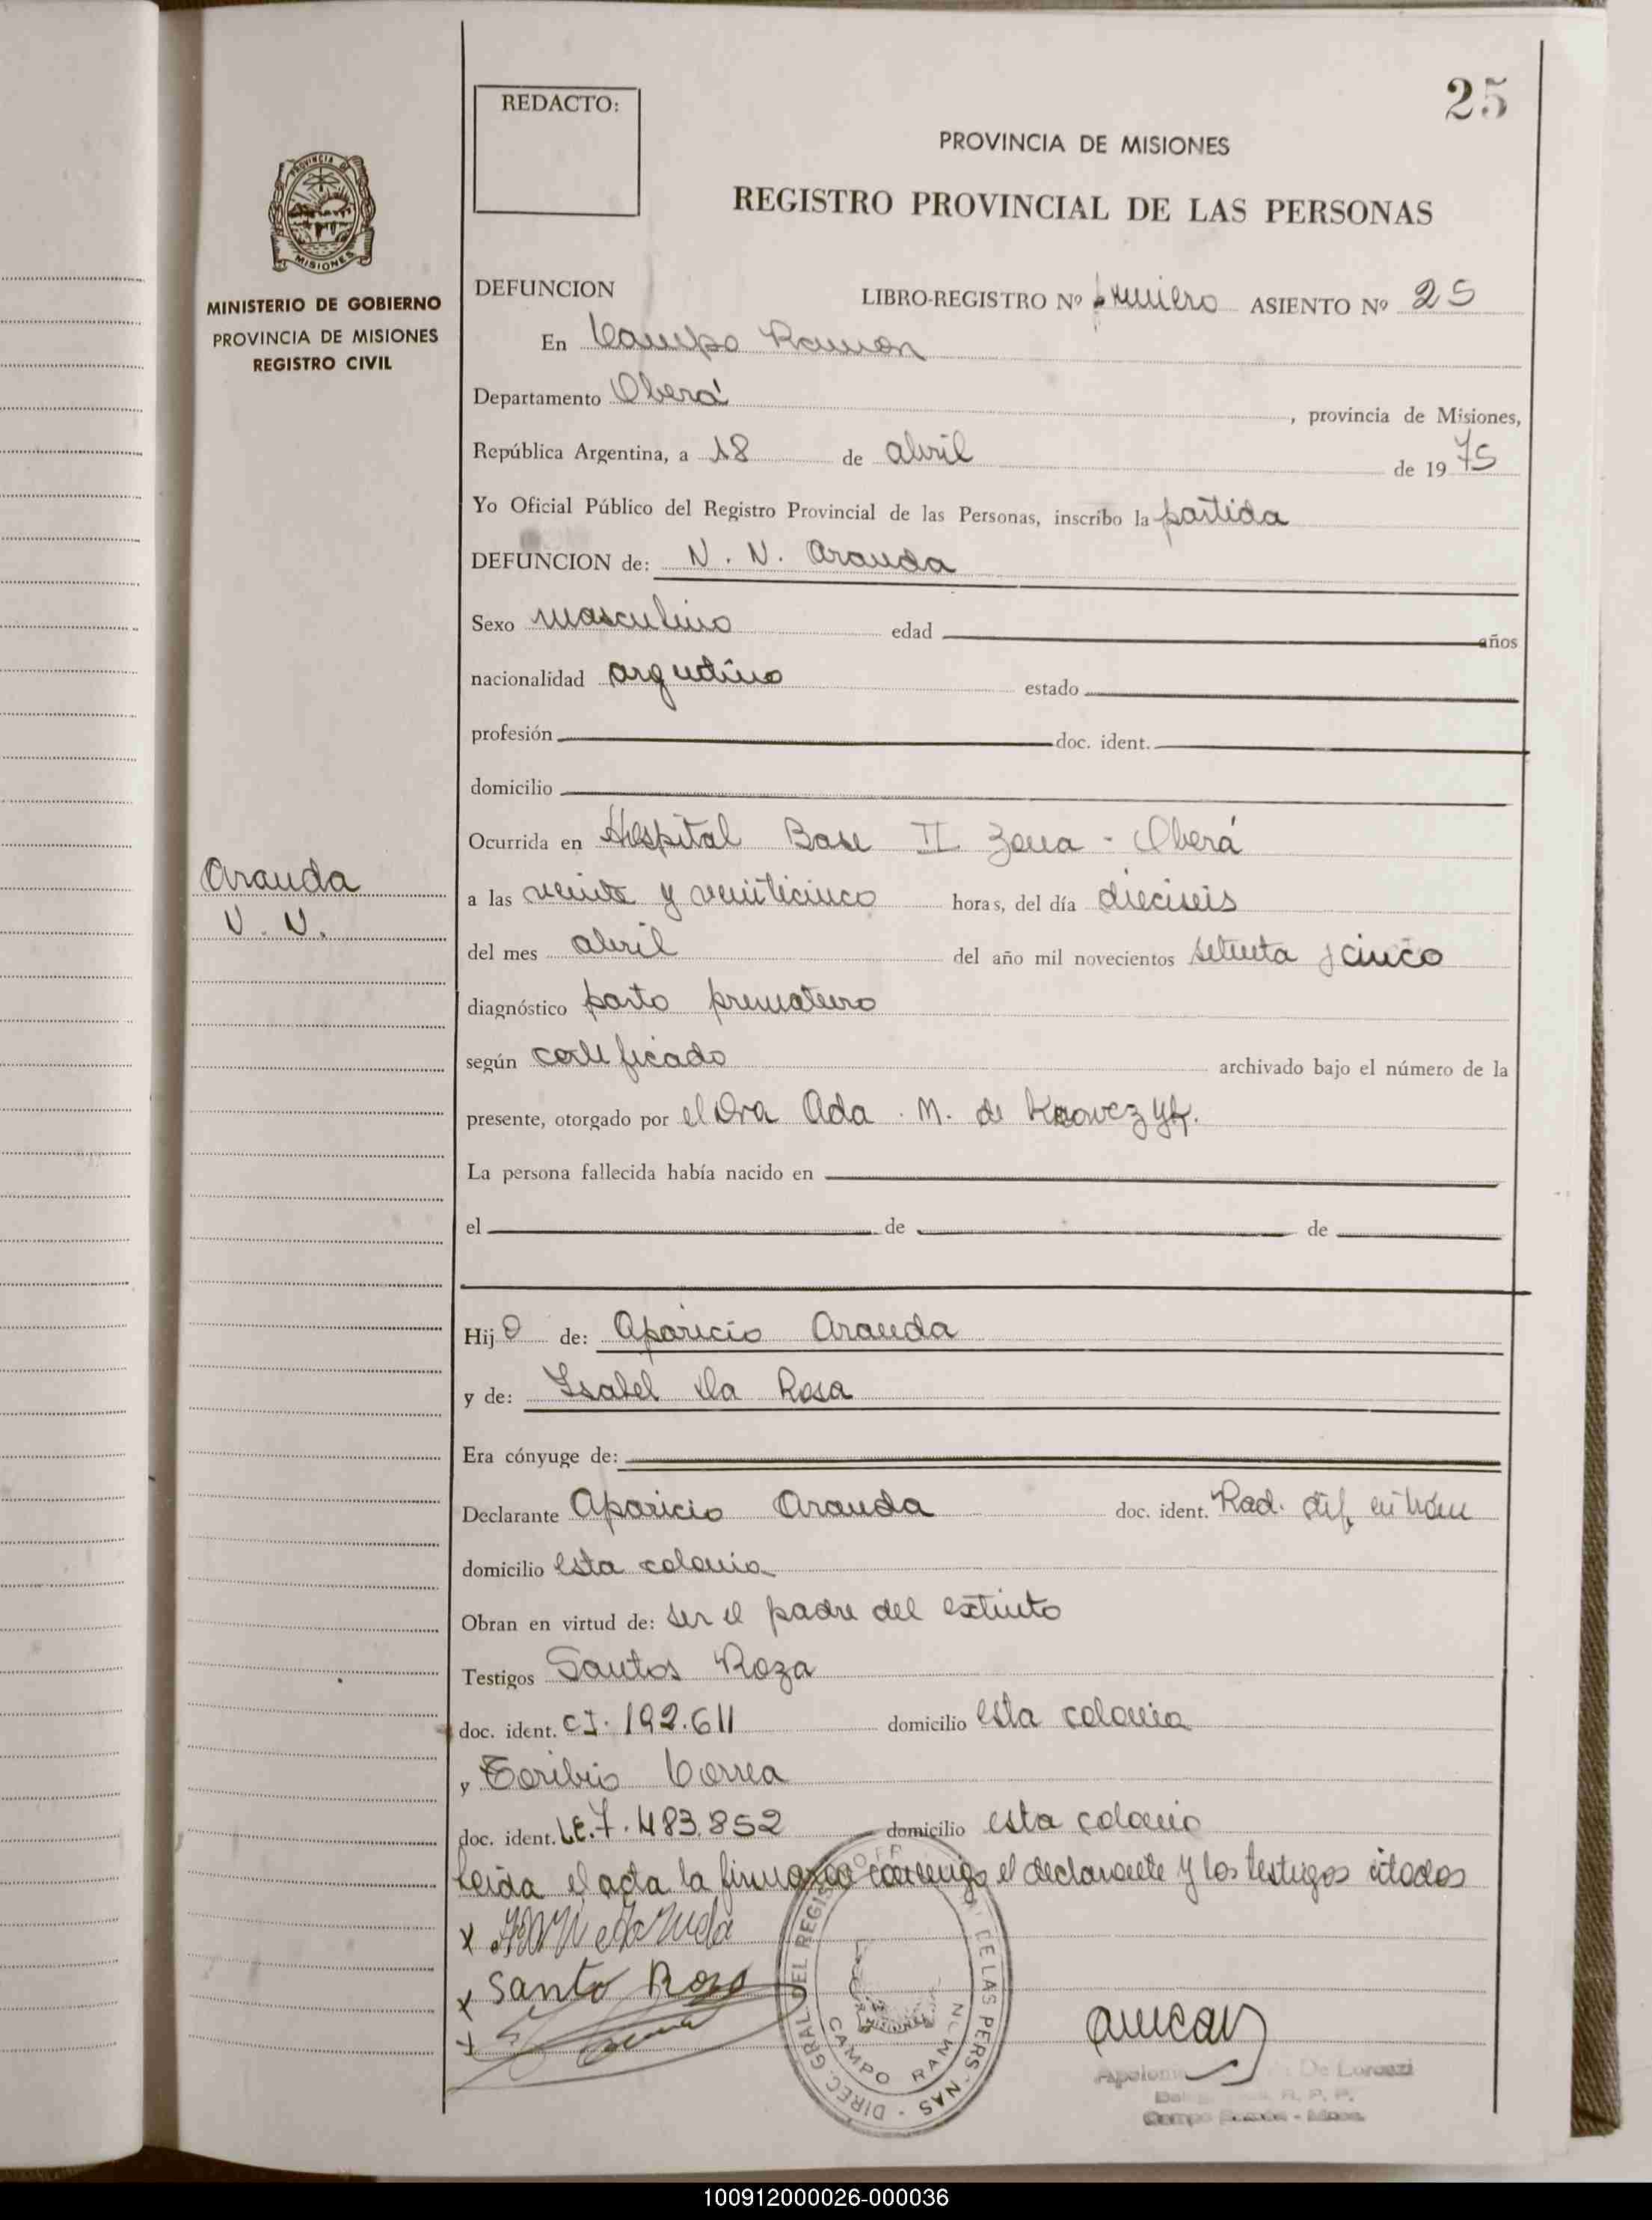 25
REDACTO:
PROVINCIA DE MISIONES
REGISTRO PROVINCIAL DE LAS PERSONAS
PROVINCIA DE
MISIONES
MINISTERIO DE GOBIERNO
PROVINCIA DE MISIONES
REGISTRO CIVIL
DEFUNCION LIBRO-REGISTRO Nº primero ASIENTO Nº 25
En Campo Ramon
Departamento Oberá, provincia de Misiones,
República Argentina, a 18 de abril de 1975
Yo Oficial Público del Registro Provincial de las Personas, inscribo la partida
DEFUNCION de: N. N. Aranda
Sexo masculino edad años
nacionalidad argentino estado
profesión doc. ident.
domicilio
Ocurrida en Hospital Base II Zona - Oberá
Aranda
N. N.
a las veinte y veinticinco horas, del día dieciseis
del mes abril del año mil novecientos setenta y cinco
diagnóstico parto prematuro
según certificado archivado bajo el número de la
presente, otorgado por el Dra Ada . M. de
La persona fallecida había nacido en
el de de
Hijo de: Aparicio Aranda
y de: Ysabel Da Rosa
Era cónyuge de:
Declarante Aparicio Aranda doc. ident. Rad. dif. en trám
domicilio esta colonia
Obran en virtud de: ser el padre del extinto
Testigos Santos Roza
doc. ident. CI. 192.611 domicilio esta colonia
y Toribio Correa
doc. ident. LE. 7.483.852 domicilio esta colonia
Leida el acta la firmaron conmigo el declarante y los testigos citados
x
x Santo Rosa
x
DIREC. GRAL DEL REGIS DE LAS PERSONAS
CAMPO RAMON
De Lorenzi
R. P. P.
Campo Ramón - Mnes.
100912000026-000036